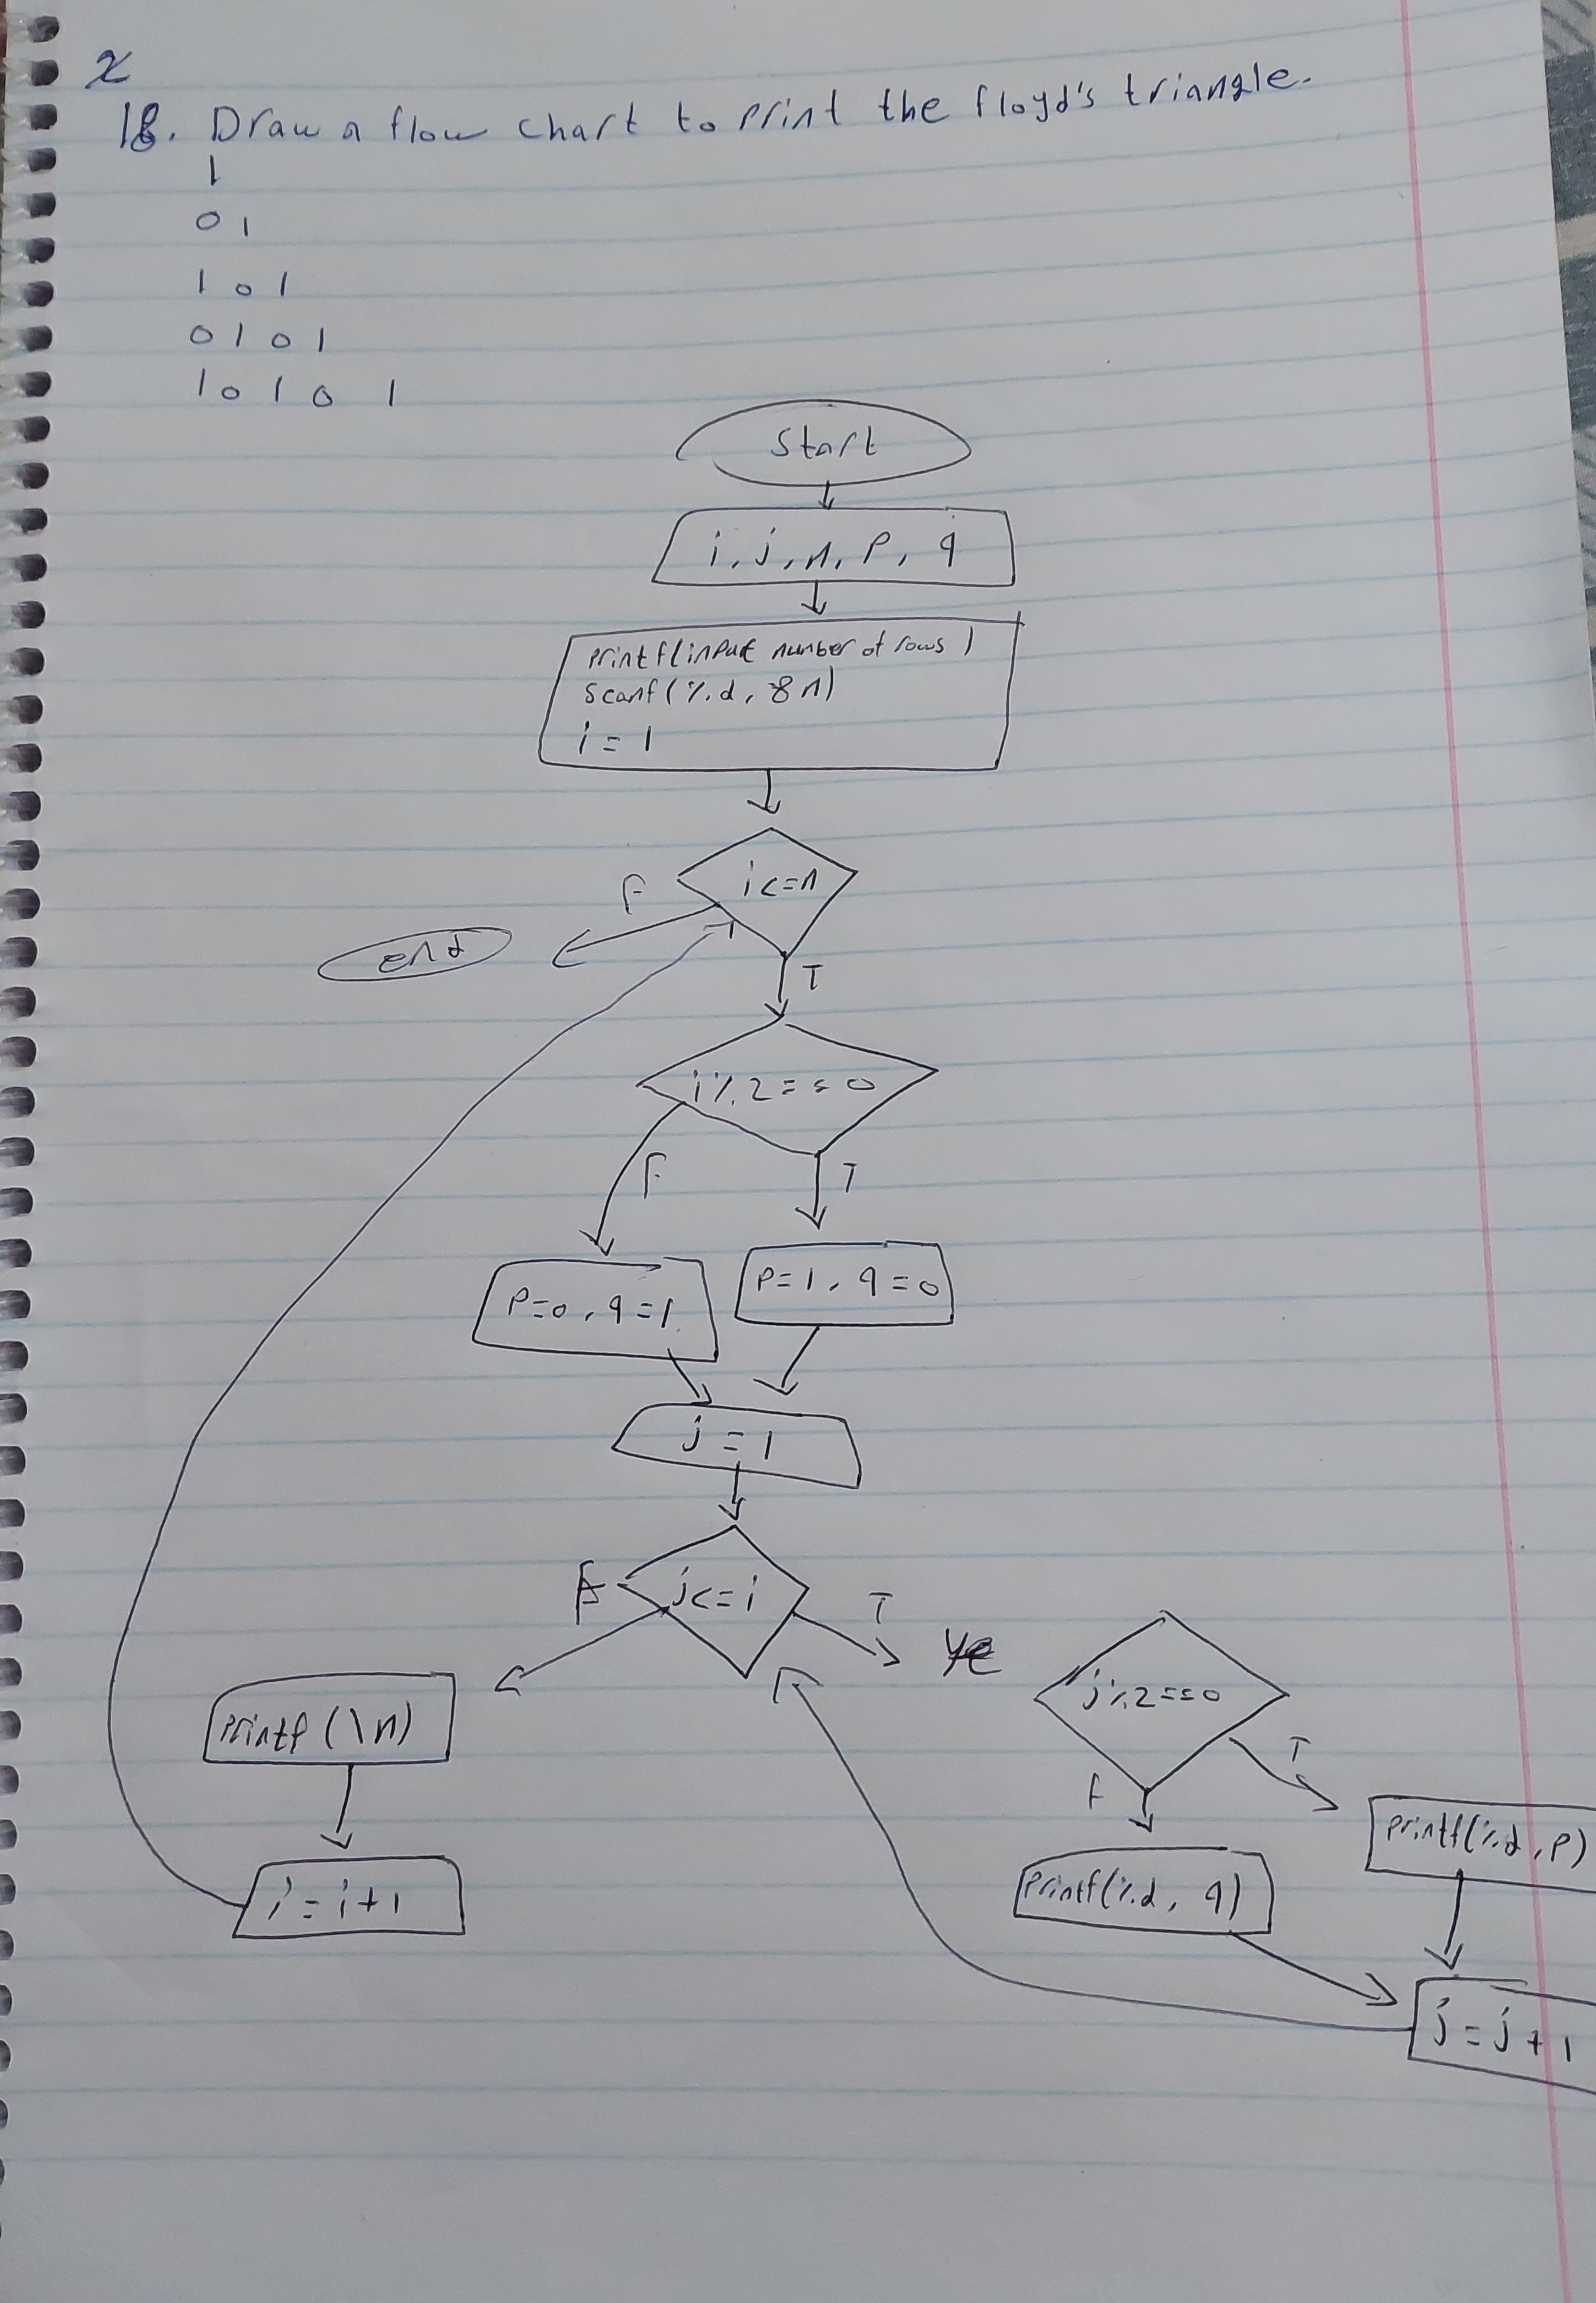 x
18. Draw a flow chart to print the floyd's triangle.
1
0 1
1 0 1
0 1 0 1
1 0 1 0 1
Start
i, j, n, p, q
printf(input number of rows)
scanf(%d, &n)
i = 1
i<=n
F
end
T
i%2==0
F
T
p=0, q=1
p=1, q=0
j = 1
j<=i
F
T
j%2==0
T
F
printf(\n)
printf(%d, p)
printf(%d, q)
i = i+1
j = j+1